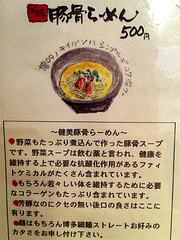 豚骨らーめん
500円
～健美豚骨らーめん～
●野菜もたっぷり煮込んで作った豚骨スープ
です。野菜スープは飲む薬と言われ、健康を
維持する上で必要な抗酸化作用があるファィ
トケミカルがたくさん含まれています。
●もちろん若々しい体を維持するために必要
なコラーゲンもたっぷり含まれています。
●芳醇なのにクセの無い後口の良さはここに
有ります。
●麺はもちろん博多細麺ストレートお好みの
カタさをお申し付け下さい。